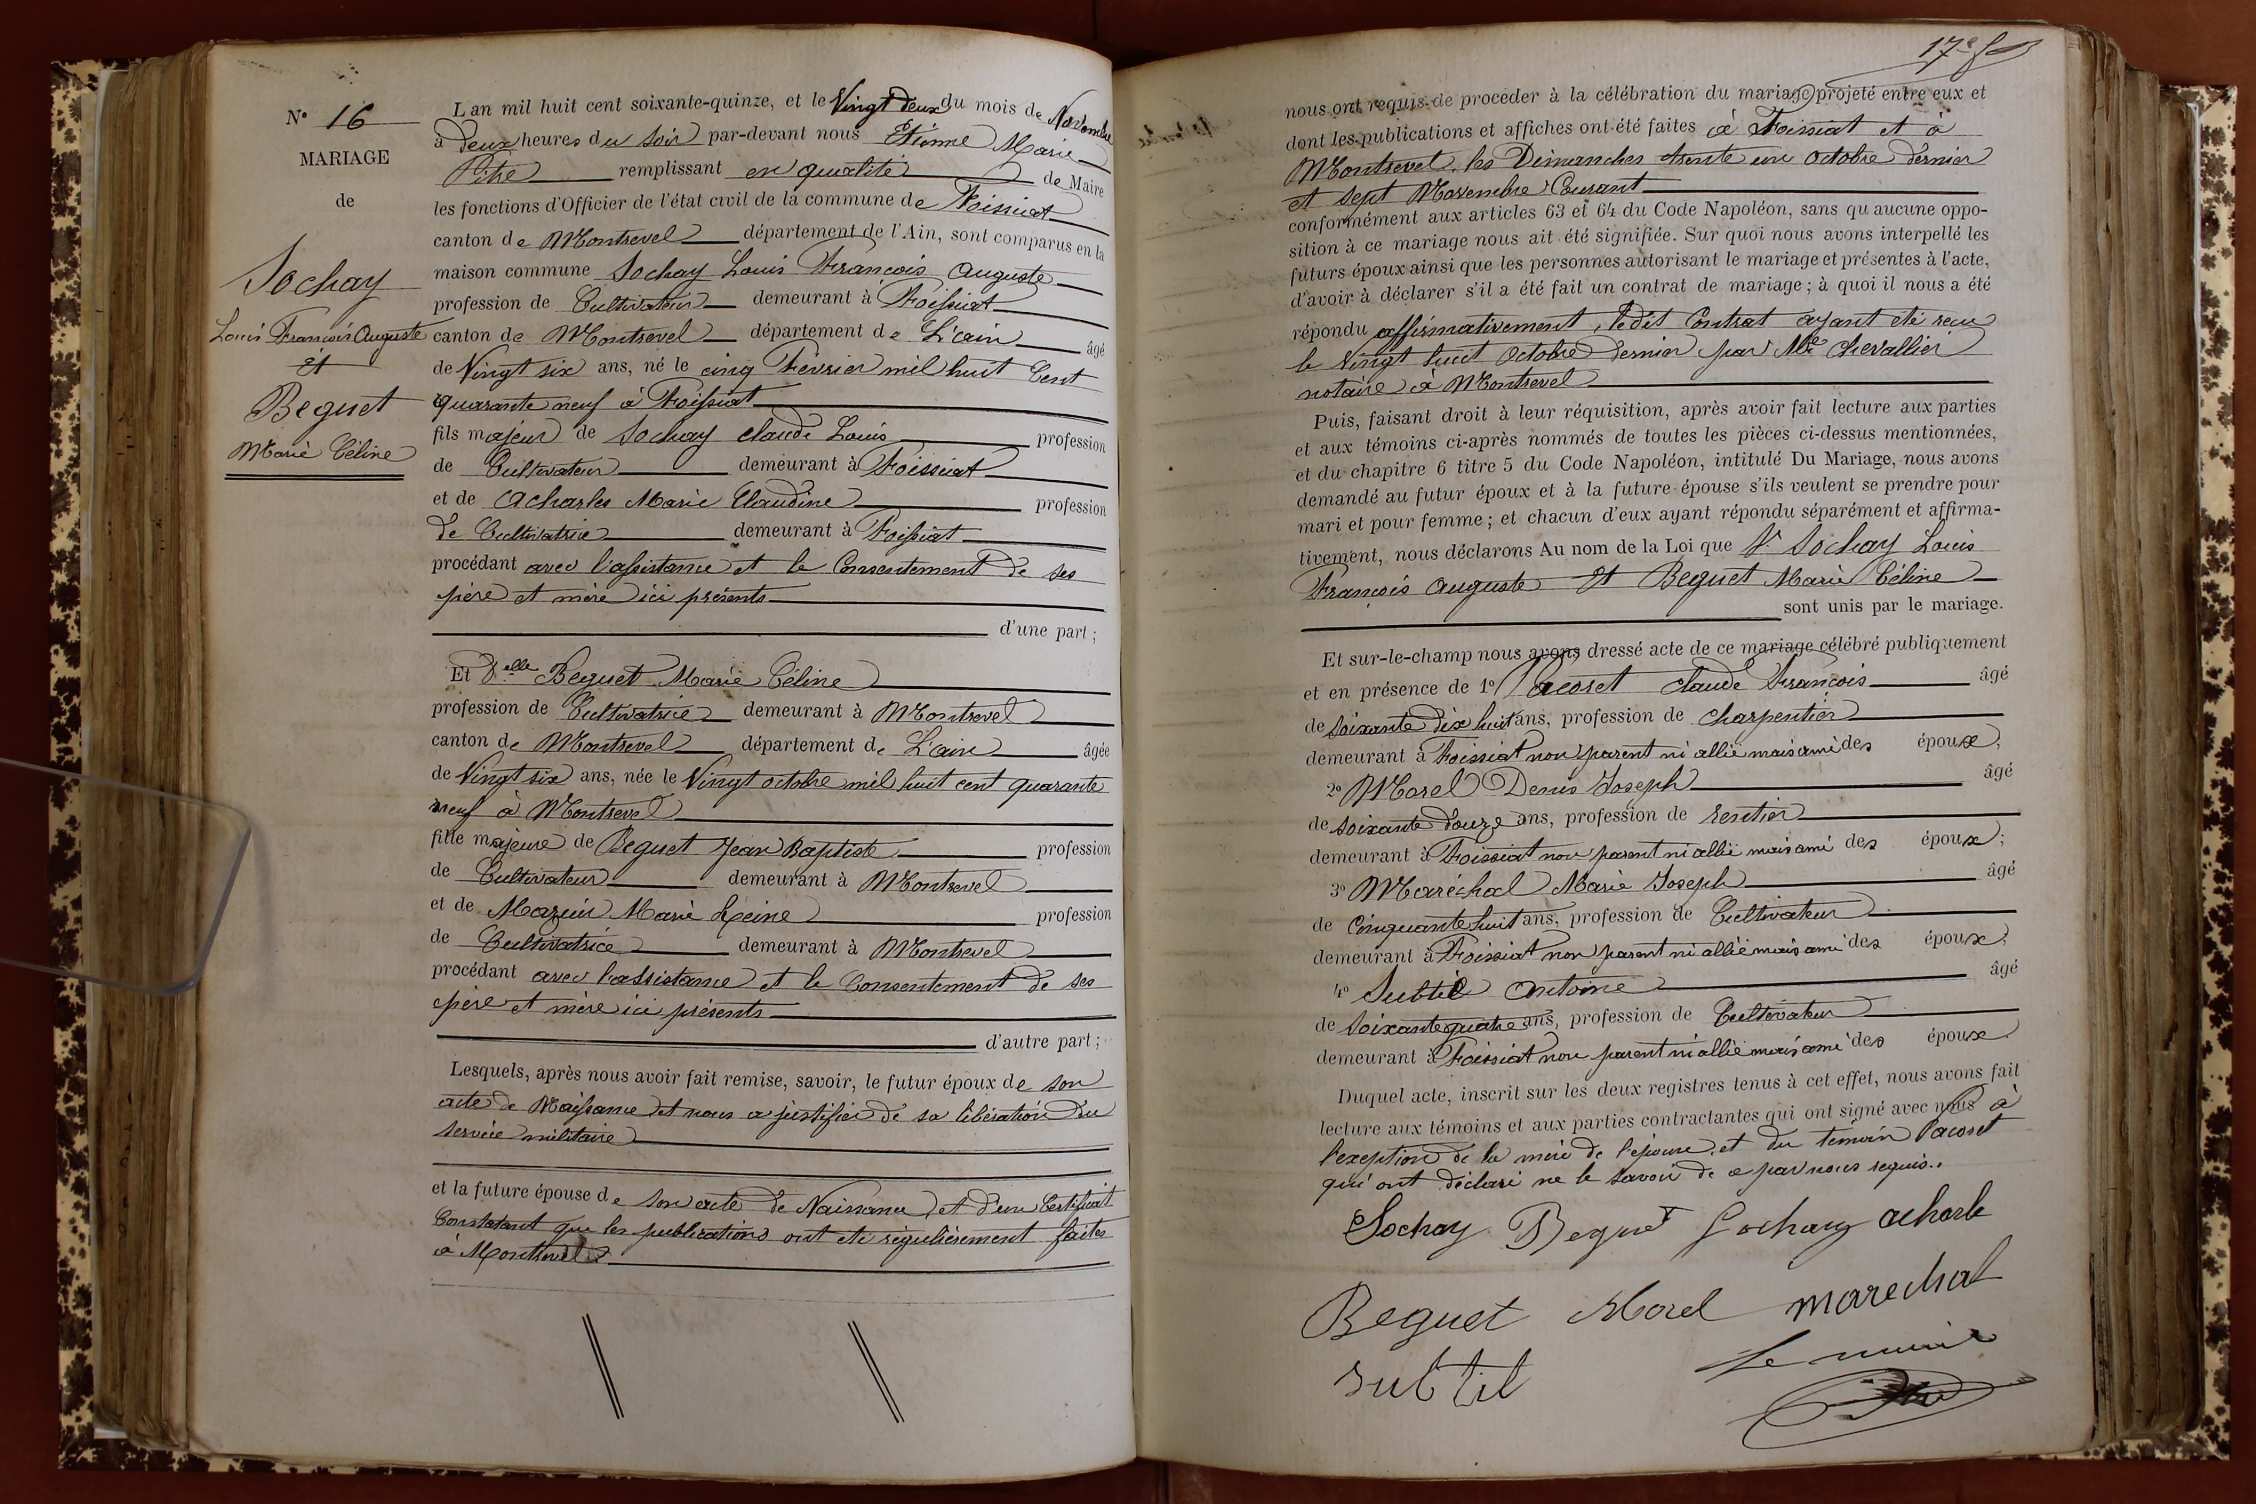 N° 16
MARIAGE
de
Sochay
Louis François Auguste
et
Beguet
Marie Céline
L'an mil huit cent soixante-quinze, et le Vingt deux du mois de Novembre
à Deux heures du soir par-devant nous Etienne Marie
Pitre remplissant en qualité de Maire
les fonctions d'Officier de l'état civil de la commune de Foissiat
canton de Montrevel département de l'Ain, sont comparus en la
maison commune Sochay Louis François Auguste
profession de Cultivateur demeurant à Foissiat
canton de Montrevel département de L'ain âgé
de Vingt six ans, né le cinq Février mil huit Cent
quarante neuf à Foissiat
fils majeur de Sochay Claude Louis profession
de Cultivateur demeurant à Foissiat
et de Acharles Marie Claudine profession
de Cultivatrice demeurant à Foissiat
procédant avec l'assistance et le Consentement de ses
père et mère ici présents
d'une part ;
Et Delle Beguet Marie Céline
profession de Cultivatrice demeurant à Montrevel
canton de Montrevel département de L'ain âgée
de Vingt six ans, née le Vingt octobre mil huit cent quarante
neuf à Montrevel
fille majeure de Beguet Jean Baptiste profession
de Cultivateur demeurant à Montrevel
et de Mazuir Marie Reine profession
de Cultivatrice demeurant à Montrevel
procédant avec l'assistance et le Consentement de ses
père et mère ici présents
d'autre part ;
Lesquels, après nous avoir fait remise, savoir, le futur époux de son
acte de Naissance et nous a justifier de sa libération du
service militaire
et la future épouse de son acte de Naissance et d'un Certificat
Constatant que les publications ont été régulièrement faites
à Montrevel
17e
nous ont requis de procéder à la célébration du mariage projeté entre eux et
dont les publications et affiches ont été faites à Foissiat et à
Montrevel les Dimanches trente un Octobre dernier
et sept Novembre Courant
conformément aux articles 63 et 64 du Code Napoléon, sans qu'aucune oppo-
sition à ce mariage nous ait été signifiée. Sur quoi nous avons interpellé les
futurs époux ainsi que les personnes autorisant le mariage et présentes à l'acte,
d'avoir à déclarer s'il a été fait un contrat de mariage ; à quoi il nous a été
répondu affirmativement, ledit Contrat ayant été reçu
le vingt huit Octobre dernier par Me Chevallier
notaire à Montrevel
Puis, faisant droit à leur réquisition, après avoir fait lecture aux parties
et aux témoins ci-après nommés de toutes les pièces ci-dessus mentionnées,
et du chapitre 6 titre 5 du Code Napoléon, intitulé Du Mariage, nous avons
demandé au futur époux et à la future épouse s'ils veulent se prendre pour
mari et pour femme ; et chacun d'eux ayant répondu séparément et affirma-
tivement, nous déclarons Au nom de la Loi que Sochay Louis
François Auguste Et Beguet Marie Céline
sont unis par le mariage.
Et sur-le-champ nous avons dressé acte de ce mariage célébré publiquement
et en présence de 1° Pacoret Claude François âgé
de Soixante dix huit ans, profession de charpentier
demeurant à Foissiat non parent ni allié mais ami des époux ;
2° Morel Denis Joseph âgé
de soixante douze ans, profession de rentier
demeurant à Foissiat non parent ni allié mais ami des époux ;
3° Maréchal Marie Joseph âgé
de Cinquante huit ans, profession de Cultivateur
demeurant à Foissiat non parent ni allié mais ami des époux ;
4° Subtil Antoine âgé
de Soixante quatre ans, profession de Cultivateur
demeurant à Foissiat non parent ni allié mais ami des époux.
Duquel acte, inscrit sur les deux registres tenus à cet effet, nous avons fait
lecture aux témoins et aux parties contractantes qui ont signé avec nous à
l'exeption de la mère de l'épouse et du témoin Pacoret
qui ont déclaré ne le savoir de ce par nous requis.
Sochay Beguet Sochay acharle
Beguet Morel marechal
subtil Le maire